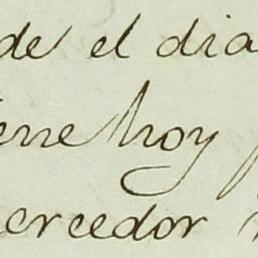 de el dia
ene hoy
ercedor